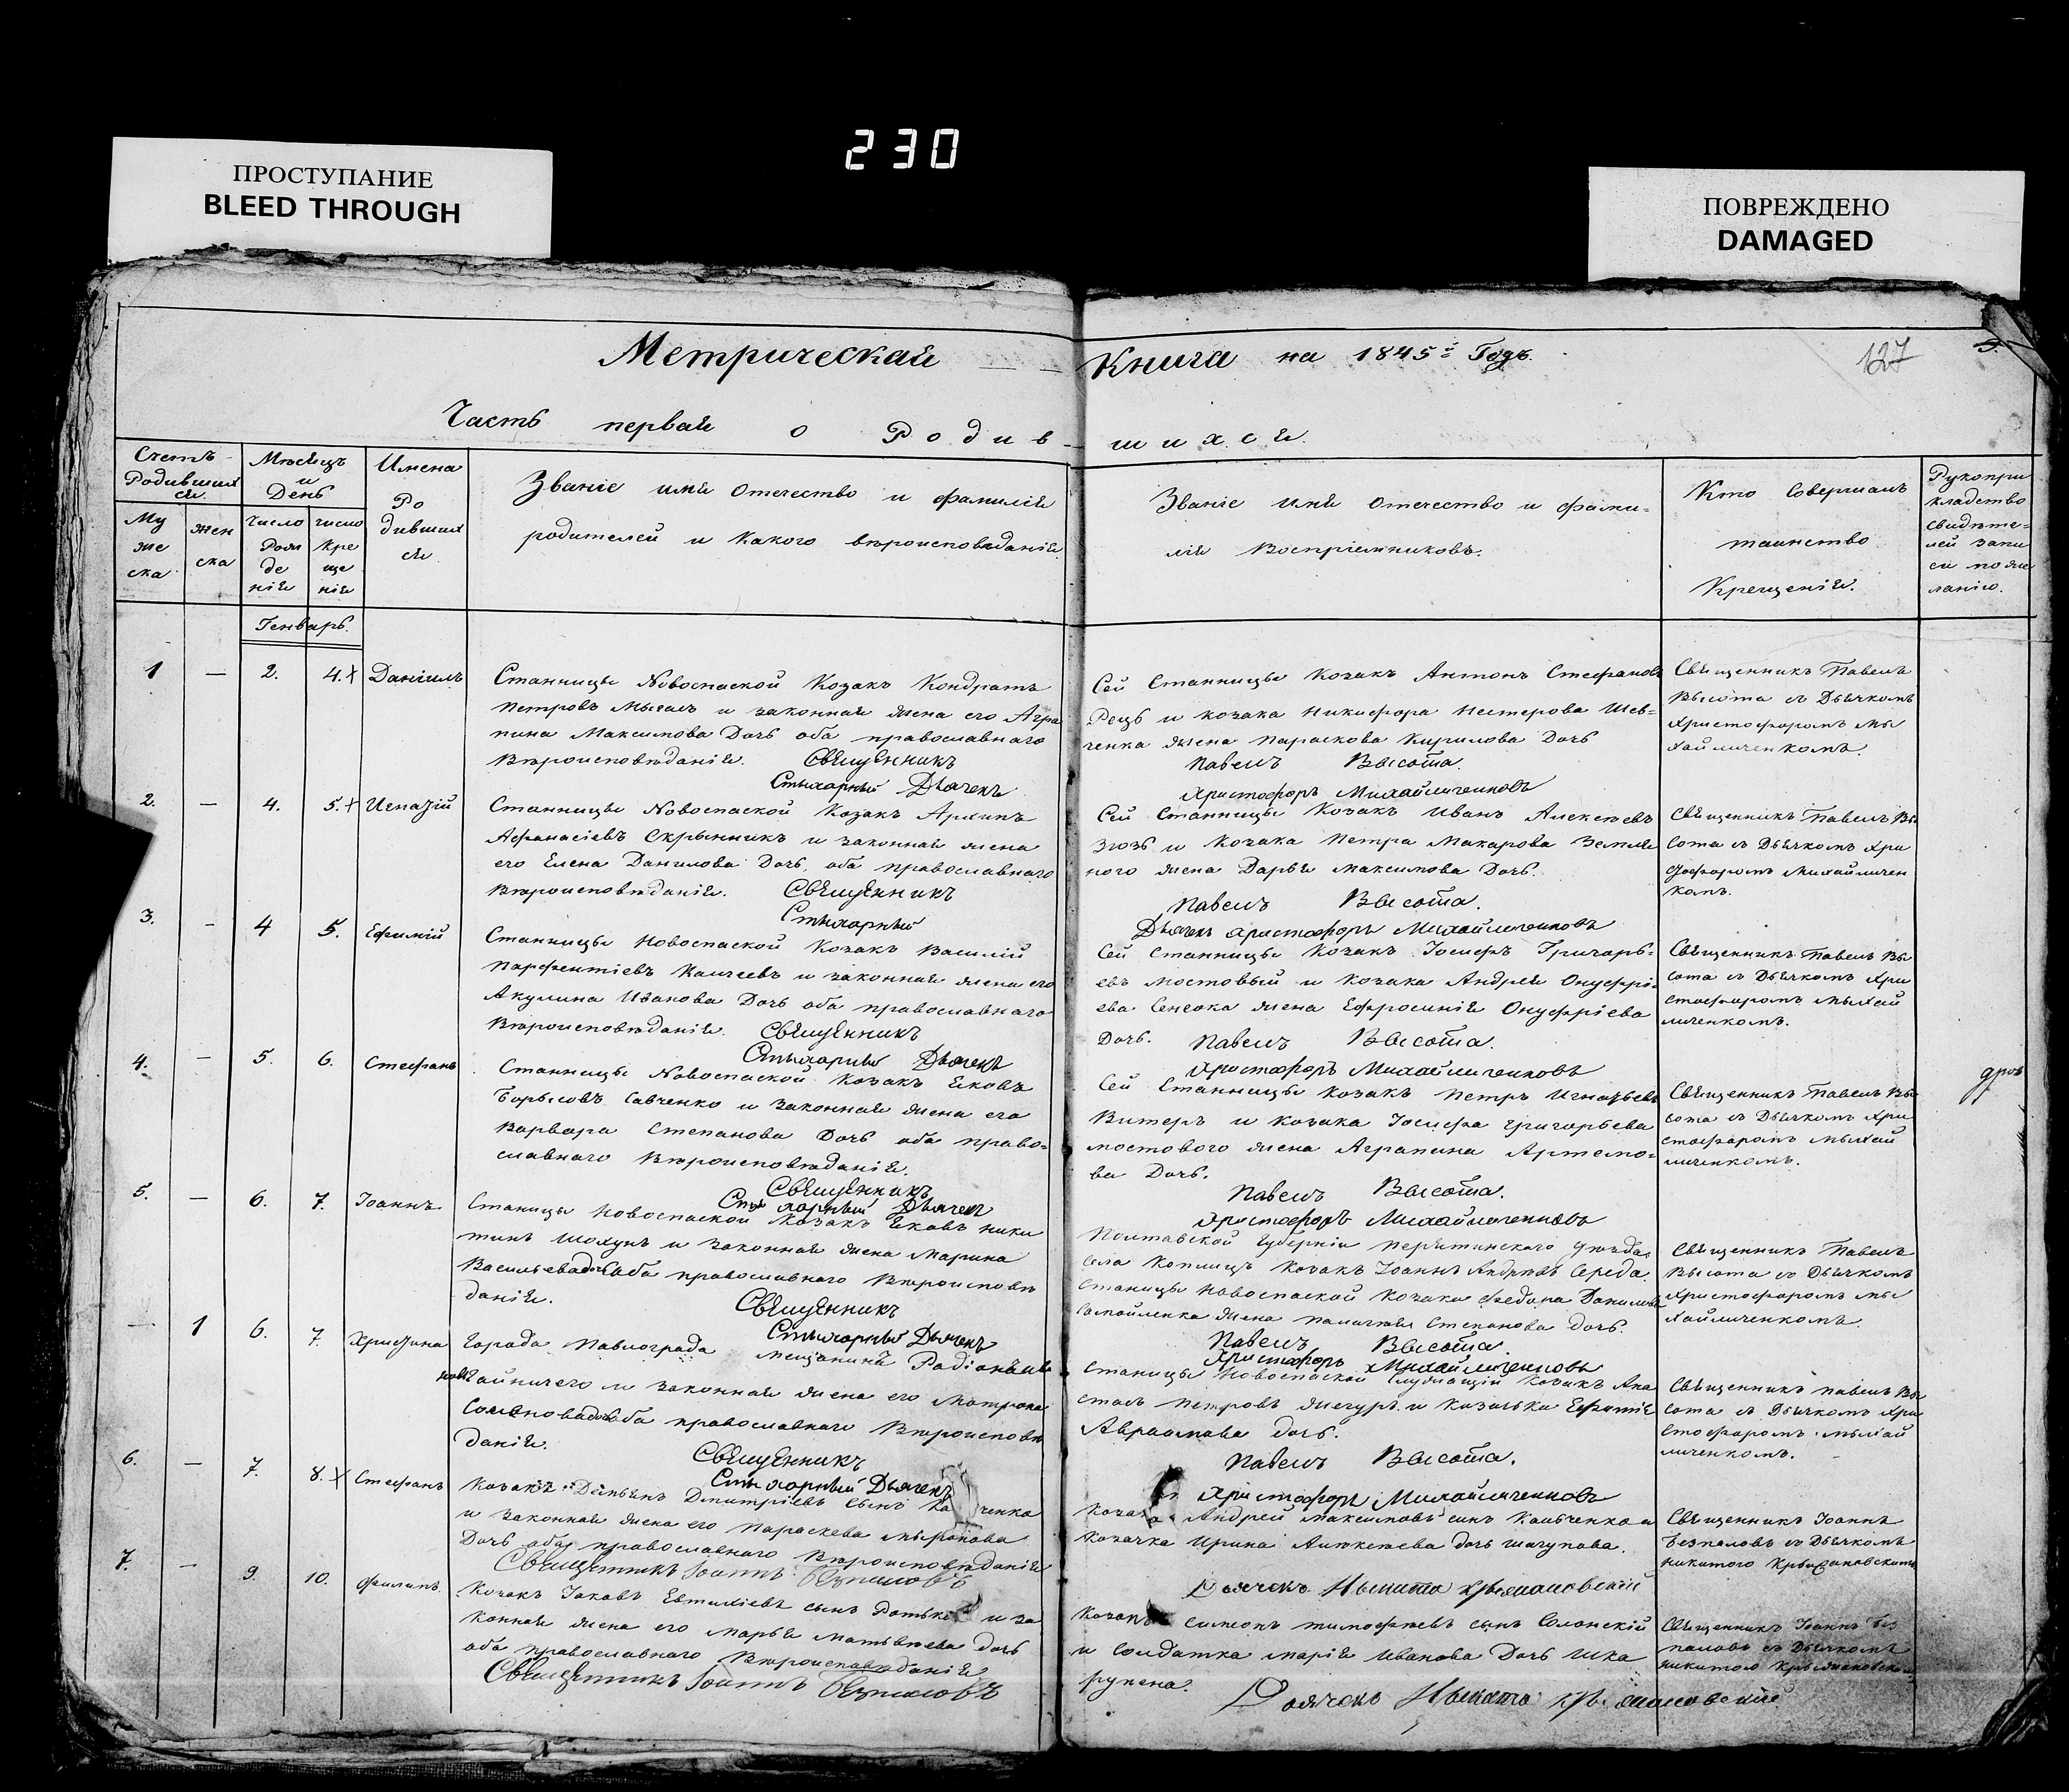 230
ПРОСТУПАНИЕ
BLEED THROUGH
ПОВРЕЖДЕНО
DAMAGED
Метрическая Книга на 1845й Годъ.
127
Часть первая о Родив- шихся.
Счетъ Родившихся.
Му же ска
Жен ска
Мѣсяцъ и День
Число Рожде нія
число Кре ще нія
Имена Ро дивших ся
Званіе имя отечество и фамилія
родителей и какого вѣроисповѣданія
Званіе имя отечество и фами-
лія Воспріемниковъ.
Кто Совершалъ
таинство
Крещенія.
Рукопри
кладство
свидѣте-
лей запи
си по же
ланію.
Генварь.
1 — 2. 4. Даніилъ
Станницы Новоспаской Козакъ Кондратъ
Петровъ и законная жена его Агра
пина Максимова Дочь оба православнаго
Вѣроисповѣданія. Священникъ
Стихарный Дьячекъ
Сей Станницы Козакъ Антонъ Стефановъ
и козака Никифора Нестерова Шев-
ченка жена Параскова Кирилова Дочь
Павелъ Высота.
Христофоръ Михайличенковъ
Священникъ Павелъ
Высота съ Дьячкомъ
Христофоромъ Мы
хайличенкомъ.
2. — 4. 5. Игнатій
Станницы Новоспаской Козакъ Архипъ
Афанасіевъ Скрынникъ и законная жена
его Елена Данилова Дочь, оба православнаго
Вѣроисповѣданія. Священникъ
Стихарный
Сей Станницы Козакъ Иванъ Алексѣевъ
Зюзь и Козака Петра Макарова Земля
ного жена Дарья Максимова Дочь.
Павелъ Высота.
Дьячекъ Христофоръ Михайличенковъ
Священникъ Павелъ Вы
сота съ Дьячкомъ Хри
Михайличен
комъ.
3. — 4 5. Ефимій
Станницы Новоспаской Козакъ Василій
Парфентіевъ и законная жена его
Акулина Иванова Дочь оба православнаго
Вѣроисповѣданія. Священникъ
Стихарный Дьячекъ
Сей Станницы Козакъ Іосифъ Григорь-
евъ Мостовый и Козака Андрея Онуфрі-
ева жена Ефросинія Онуфріева
Дочь. Павелъ Высота.
Христофоръ Михайличенковъ
Священникъ Павелъ Вы
сота съ Дьячкомъ Хри
стофоромъ Мыхай
личенкомъ.
4. — 5. 6. Стефанъ
Станницы Новоспаской Козакъ Яковъ
Борысовъ Савченко и законная жена его
Варвара Степанова Дочь оба право-
славнаго Вѣроисповѣданія.
Священникъ
Стихарный Дьячекъ
Сей Станницы Козакъ Петръ Игнатьевъ
Витеръ и Козака Іосифа Григорьева
Мостового жена Аграпина Артемо-
ва Дочь.
Павелъ Высота.
Христофоръ Михайличенковъ
Священникъ Павелъ Вы
сота съ Дьячкомъ Хри
стофоромъ Мыхай
личенкомъ.
5. — 6. 7. Іоаннъ
Станицы Новоспаской Козакъ Яковъ Ники
тинъ и законная жена Марина
Васильева дочь оба православнаго Вѣроисповѣ
данія. Священникъ
Стихарный Дьячекъ
Полтавской Губерніи уѣзда
села Козакъ Іоаннъ Андреевъ Середа
Станицы Новоспаской Козака Федора Данилова
жена Степанова дочь.
Павелъ Высота.
Христофоръ Михайличенковъ
Священникъ Павелъ
Высота съ Дьячкомъ
Христофоромъ Мы
хайличенкомъ.
— 1 6. 7 Христина
Города Павлограда мещанинъ
и законная жена его Матрона
дочь оба православнаго Вѣроисповѣ
данія. Священникъ
Стихарный Дьячекъ
Станицы Новоспаской Козакъ
Петровъ и козачька Ефимія
Авраамова дочь.
Павелъ Высота.
Христофоръ Михайличенковъ
Священникъ Павелъ Вы
сота съ Дьячкомъ Хри
стофоромъ Мыхай
личенкомъ.
6. — 7. 8. Стефанъ
Козакъ Демьянъ Дмитріевъ сынъ
и законная жена его Параскева Миронова
Дочь оба православнаго Вѣроисповѣданія
Священникъ Іоаннъ Безпаловъ
Андрей Максимовъ сынъ и
Козачка Ирина дочь
Дьячекъ Никита
Священникъ Іоаннъ
Безпаловъ съ Дьячкомъ
Никитою
7. — 9. 10. Филипъ
Козакъ Іаковъ Евтихіевъ сынъ и за
конная жена его Марья Матвѣева дочь
оба православнаго Вѣроисповѣданія
Священникъ Іоаннъ Безпаловъ
Симонъ Тимофѣевъ сынъ Солонскій
и Солдатка Марія Иванова Дочь
Дьячекъ Никита
Священникъ Іоаннъ Без
паловъ съ Дьячкомъ
Никитою